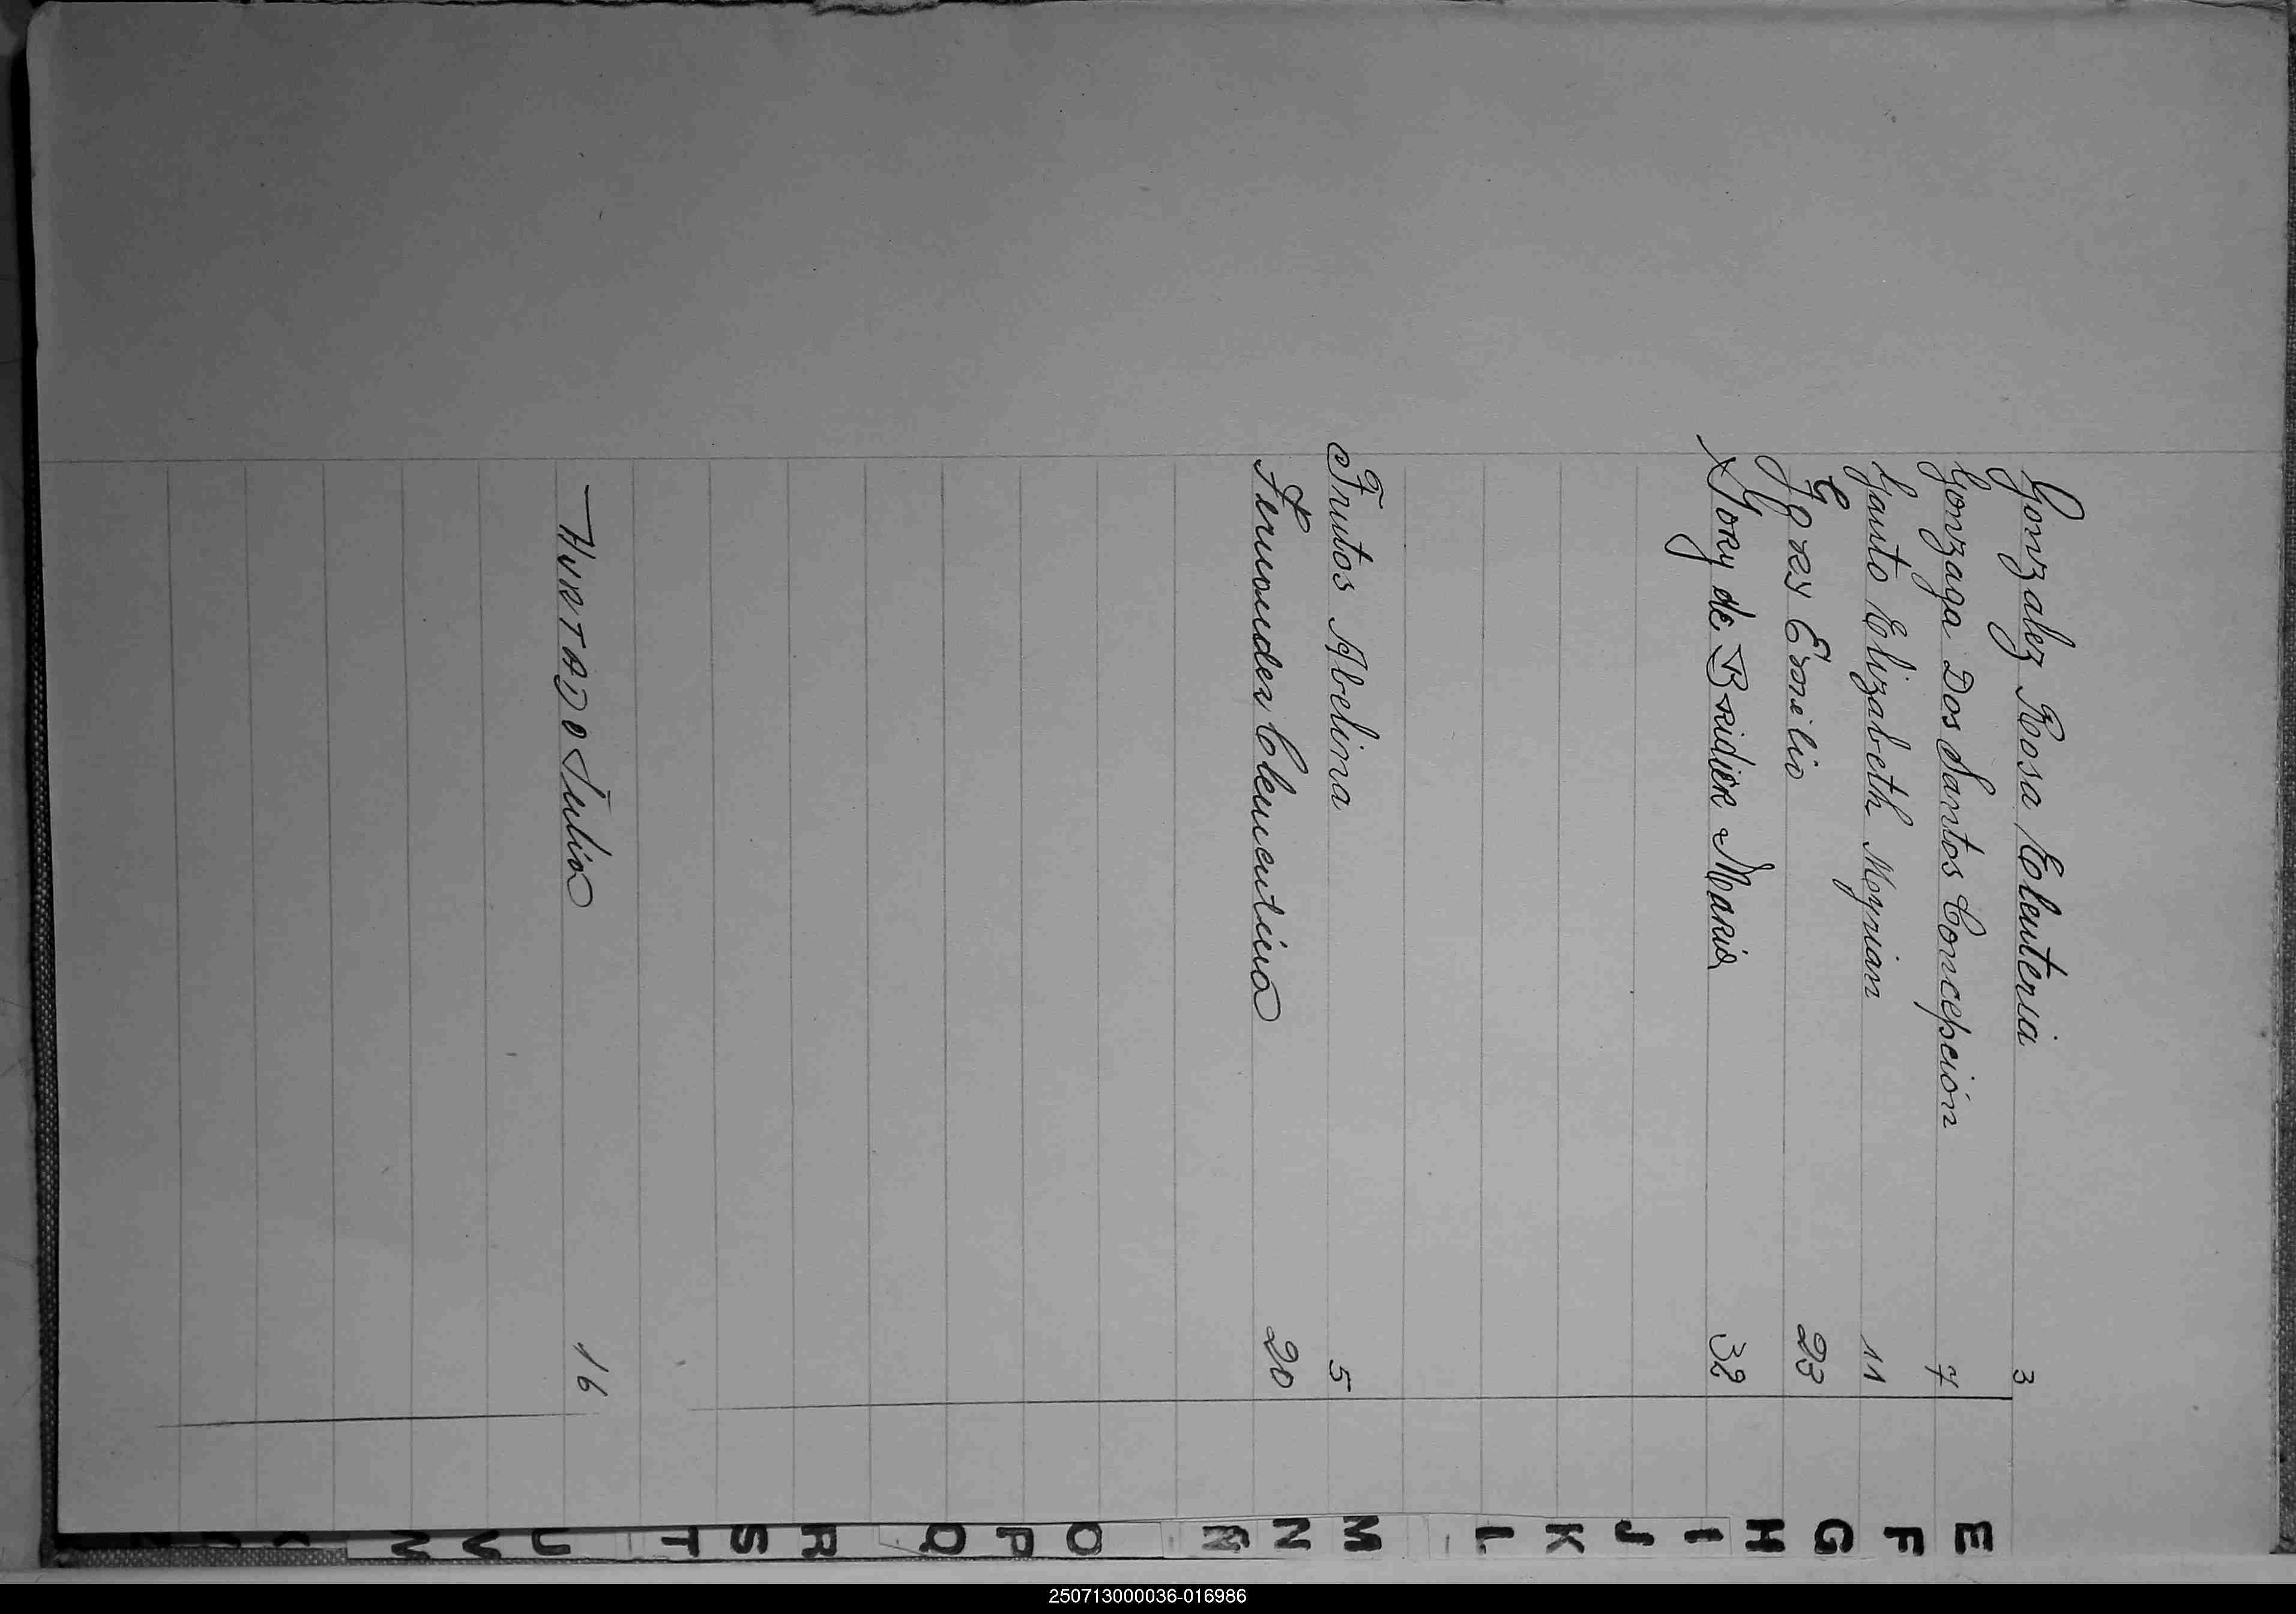 Gonzalez Rosa Eleuteria 3
Gonzaga Dos Santos Concepción 7
Gauto Elizabeth Myrian 11
Gory Emilio 23
X Gory de Bridier Maria 32
Frutos Abelina 5
Fernandez Clementina 20
HURTADO Julio 16
E
F
G
H
I
J
K
L
M
N
Ñ
O
P
Q
R
S
T
U
V
250713000036-016986